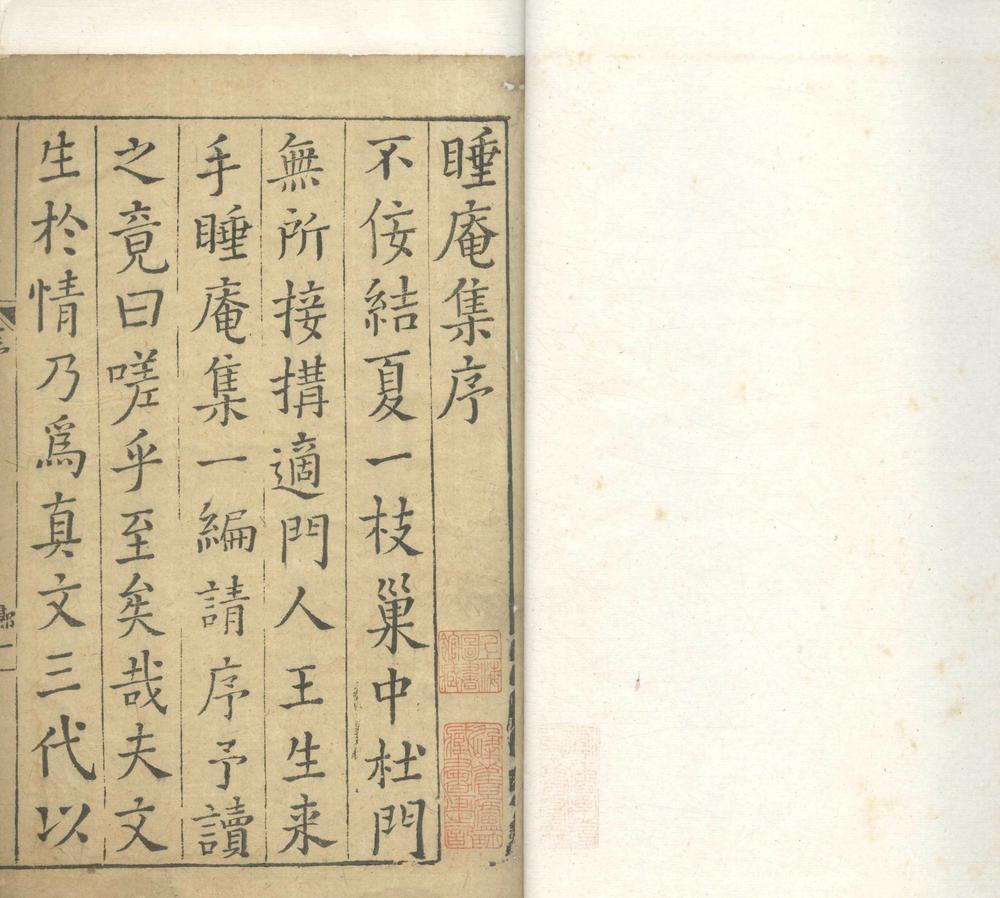 睡庵集序
不佞結夏一枝巢中杜門
無所接搆適門人王生来
手睡庵集一編請序予讀
之竟曰嗟乎至矣哉夫文
生於情乃爲真文三代以